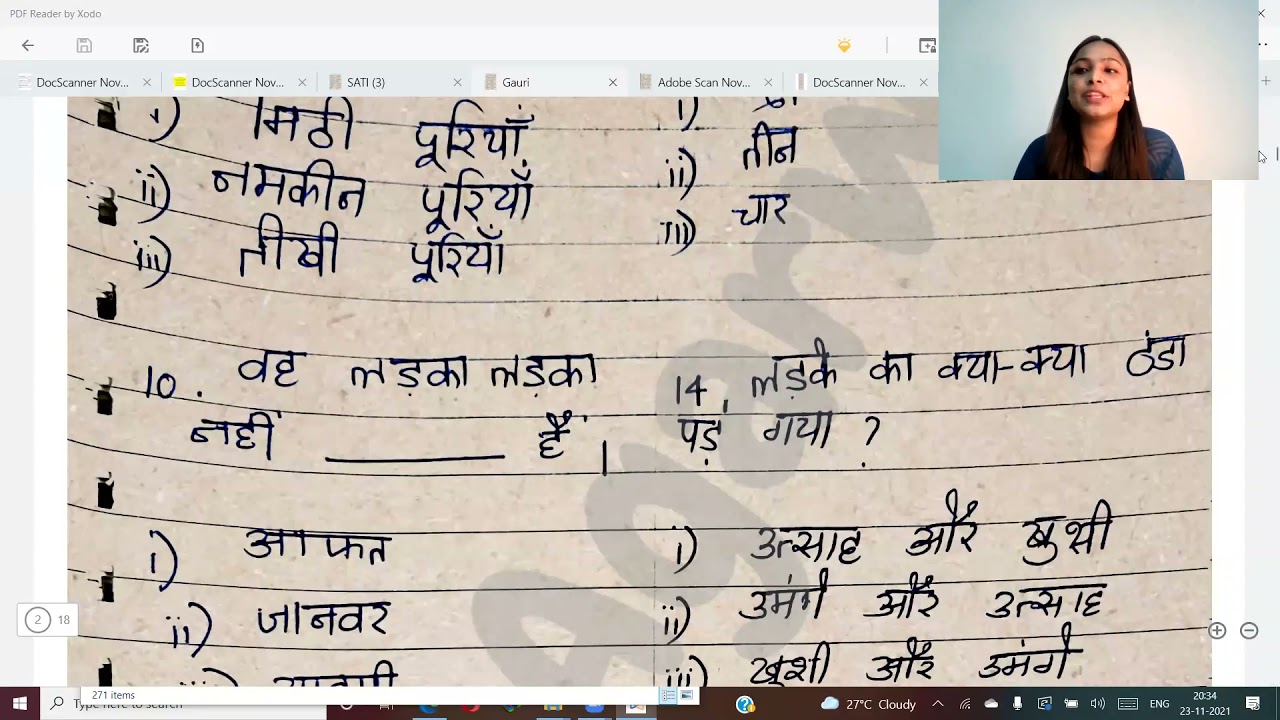 PDF Reader by Xodo
DocScanner Nov...
DocScanner Nov...
SATI (3)
Gauri
Adobe Scan Nov...
DocScanner Nov...
i) मिठी पूरियाँ
ii) नमकीन पूरियाँ
iii) तीखी पूरियाँ
10. वह लड़का लड़का
नहीं ________ हैं।
i) आफत
ii) जानवर
i)
ii) तीन
iii) चार
14. लड़के का क्या-क्या ठंडा
पड़ गया ?
i) उत्साह और खुशी
ii) उमंगे और उत्साह
iii) खुशी और उमंगे
Agarw
2 18
271 items
Type here to search
27°C Cloudy
ENG
20:34
23-11-2021